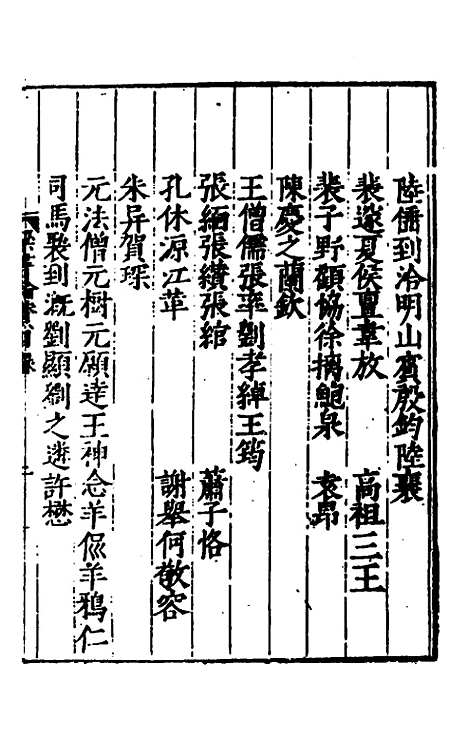 陸倕到洽明山賓殷鈞陸襄
裴邃夏侯亶韋放　高祖三王
裴子野顧協徐摛鮑泉　袁昂
陳慶之蘭欽
王僧孺張率劉孝綽王筠
張緬張纘張綰　蕭子恪
孔休源江革　謝舉何敬容
朱异賀琛
元法僧元樹元願達王神念羊侃羊鴉仁
司馬褧到溉劉顯劉之遴許懋